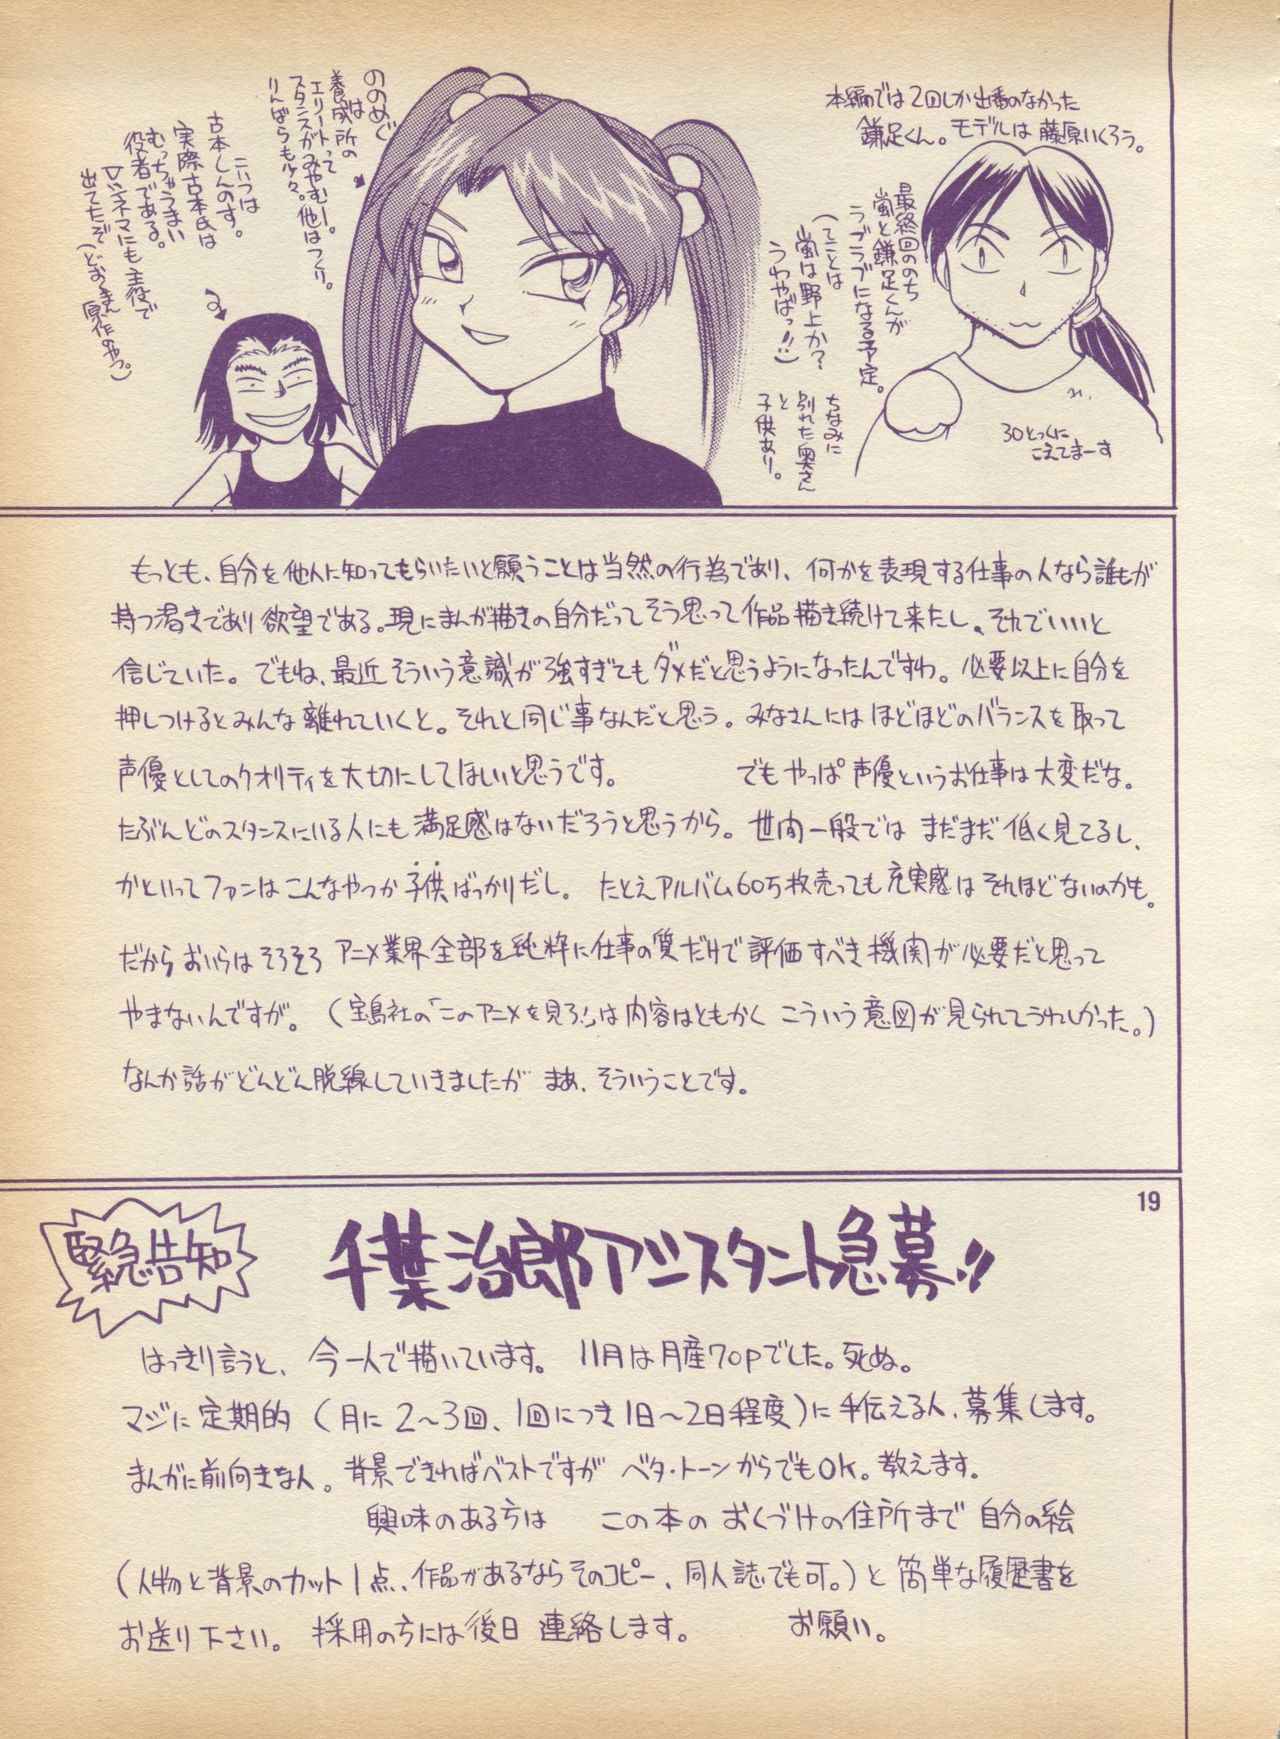 本編では2回しか出番のなかった
鎌足くん。モデルは藤原いくろう。
最終回ののち
嵐と鎌足くんが
ラブラブになる予定。
(てことは
嵐は野上か?
うわやばっ!!)
ちなみに
別れた奥さん
と
子供あり。
30とっくに
こえてまーす
ののめぐ
は
養成所の
エリートって
スタンスがみやむー。
他はつくり。
りんばらも少々。
こいつは
古本しんのす。
実際古本氏は
むっちゃうまい
役者である。
Vシネマにも主役で
出てたぞ(どおくまん
原作のやつ。)
もっとも、自分を他人に知ってもらいたいと願うことは当然の行為であり、何かを表現する仕事の人なら誰もが
持つ渇きであり欲望である。現にまんが描きの自分だってそう思って作品描き続けて来たし、それでいいと
信じていた。でもね、最近そういう意識が強すぎてもダメだと思うようになったんですわ。必要以上に自分を
押しつけるとみんな離れていくと。それと同じ事なんだと思う。みなさんにはほどほどのバランスを取って
声優としてのクオリティを大切にしてほしいと思うです。 でもやっぱ声優というお仕事は大変だな。
たぶんどのスタンスにいる人にも満足感はないだろうと思うから。世間一般ではまだまだ低く見てるし、
かといってファンはこんなやつか子供ばっかりだし。たとえアルバム60万枚売っても充実感はそれほどないのかも。
だからおいらはそろそろアニメ業界全部を純粋に仕事の質だけで評価すべき機関が必要だと思って
やまないんですが。(宝島社の「このアニメを見ろ!」は内容はともかくこういう意図が見られてうれしかった。)
なんか話がどんどん脱線していきましたがまあ、そういうことです。
19
緊急告知
千葉治郎アシスタント急募!!
はっきり言うと、今一人で描いています。11月は月産70pでした。死ぬ。
マジに定期的(月に2〜3回、1回につき1日〜2日程度)に手伝える人、募集します。
まんがに前向きな人。背景できればベストですがベタ・トーンからでもOK。教えます。
興味のある方は この本のおくづけの住所まで自分の絵
(人物と背景のカット1点、作品があるならそのコピー、同人誌でも可。)と簡単な履歴書を
お送り下さい。採用の方には後日連絡します。 お願い。